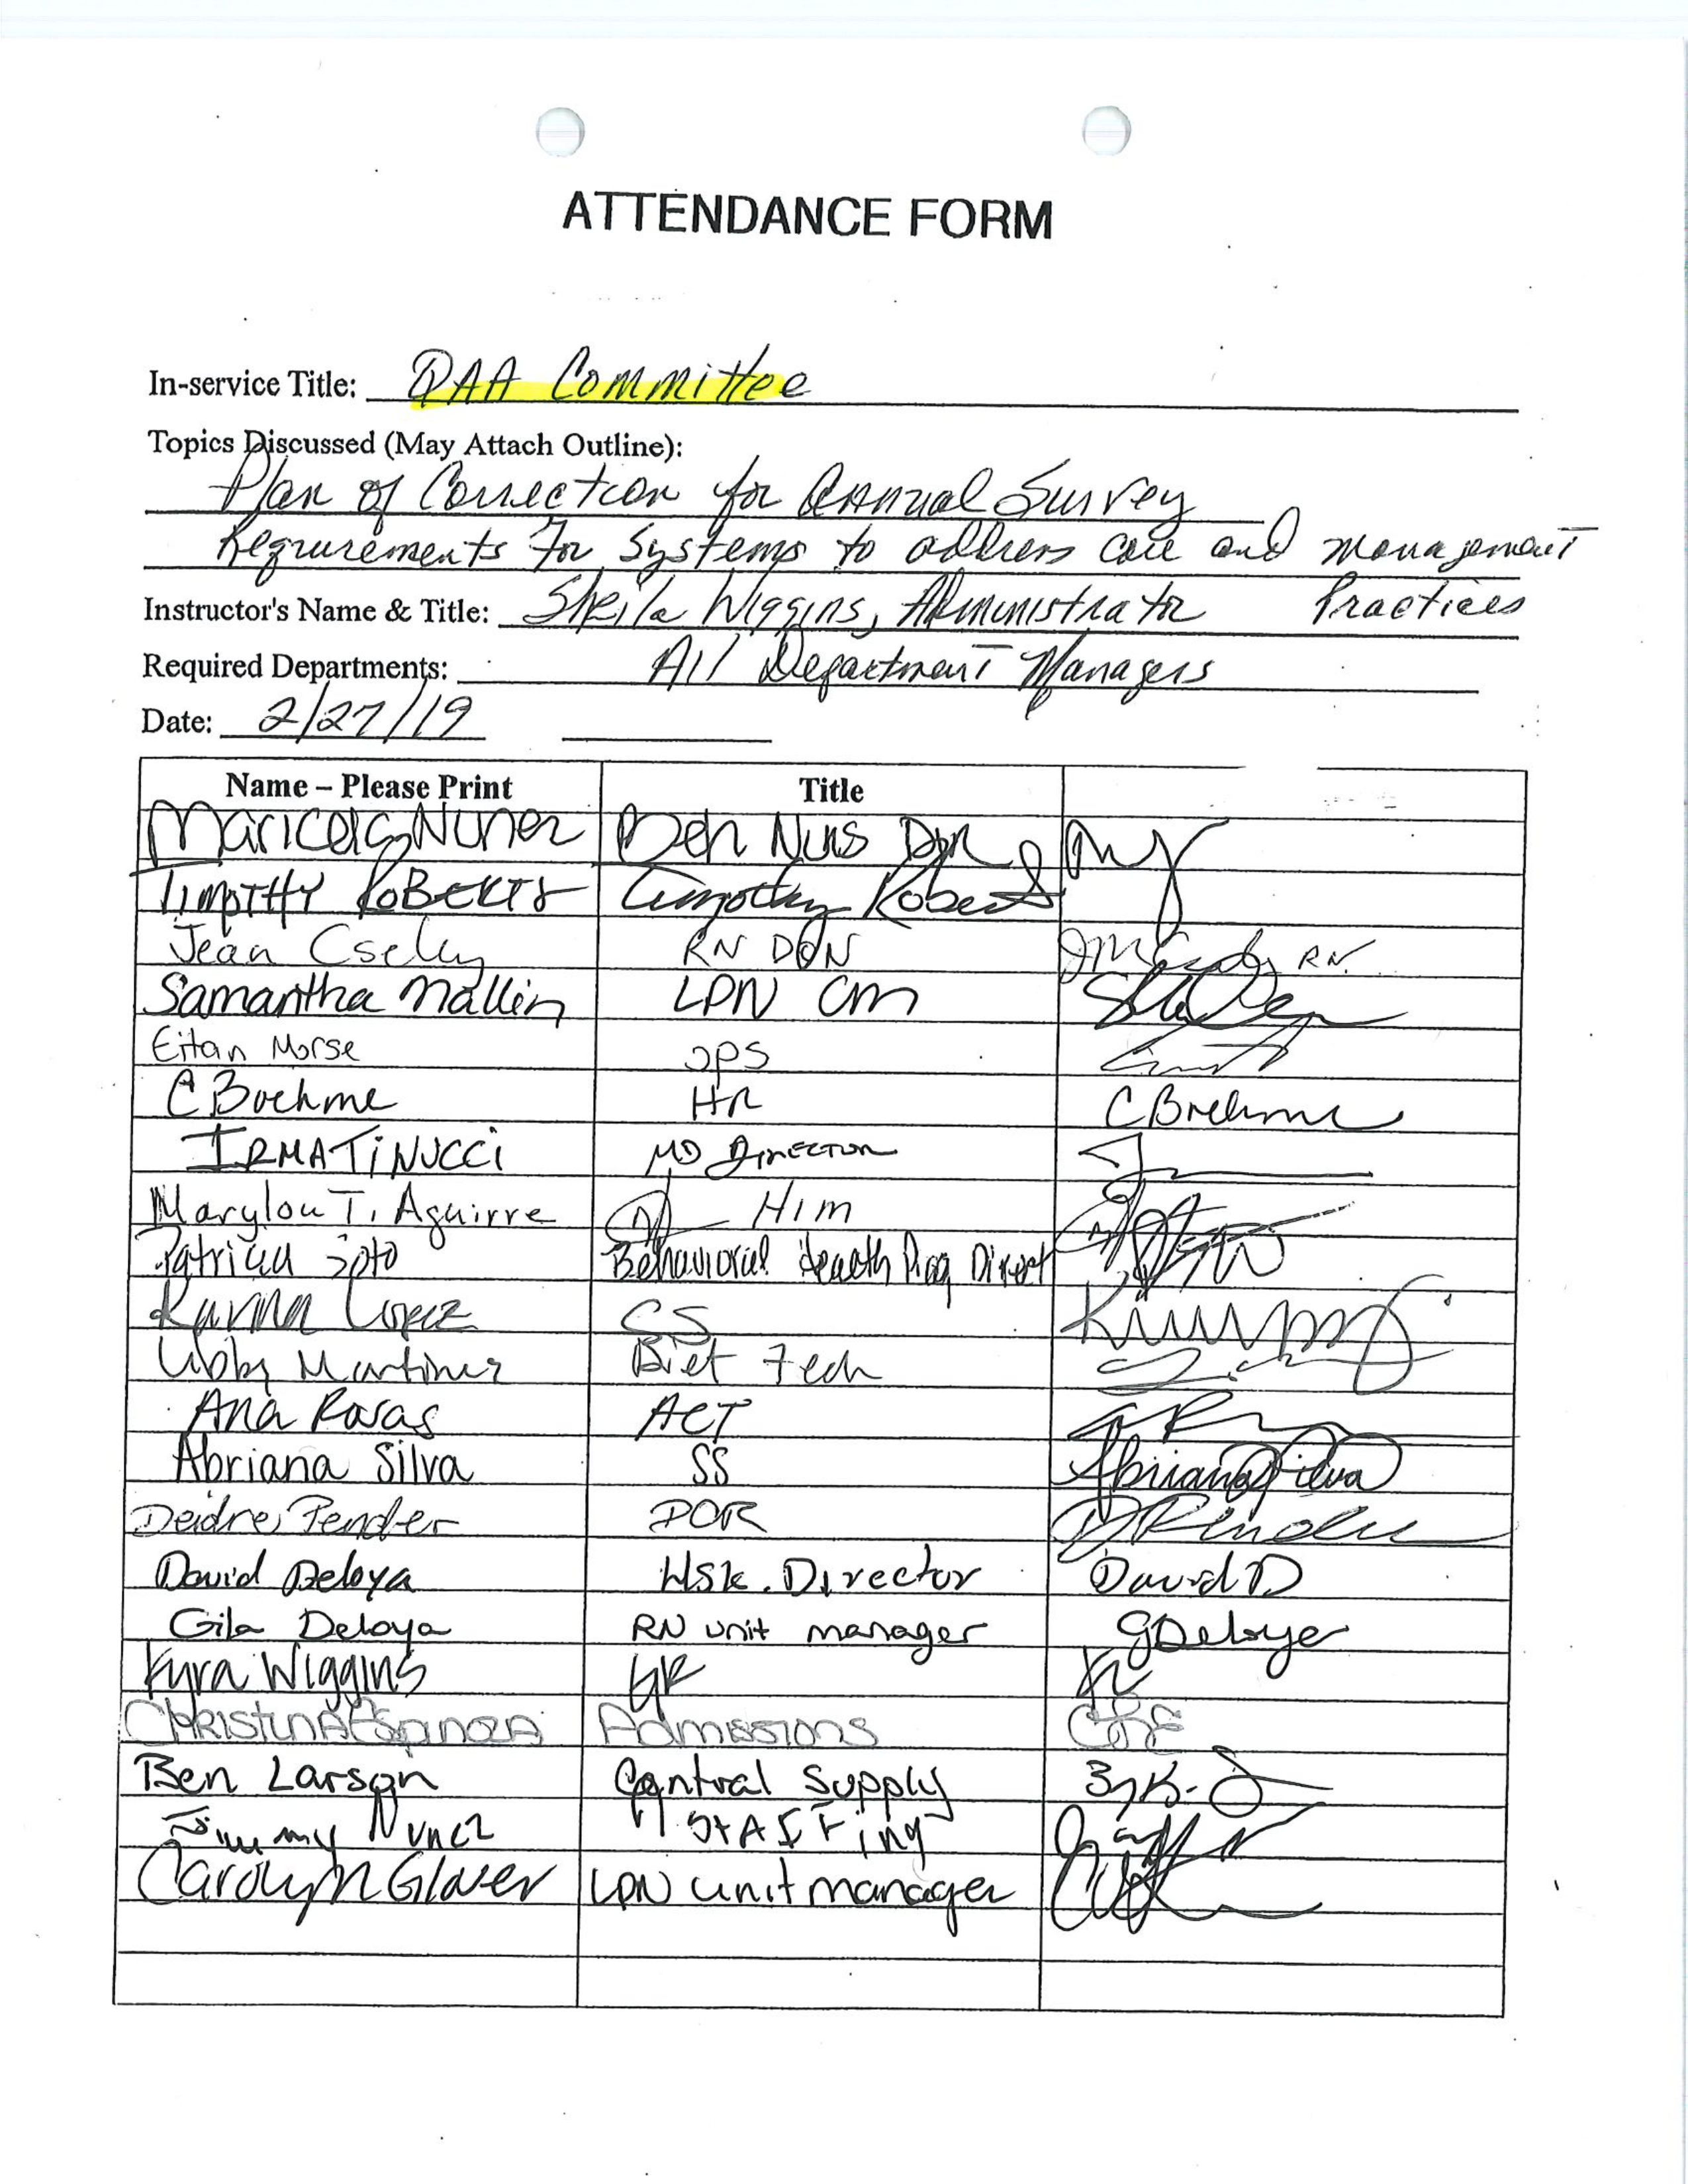 ATTENDANCE FORM
In-service Title: QAA Committee
Topics Discussed (May Attach Outline):
Plan of Correction for Annual Survey
Requirements for Systems to address care and management
Instructor's Name & Title: Sheila Wiggins, Administrator Practices
Required Departments: All Department Managers
Date: 2/27/19
Name – Please Print Title
Maricela G Nunez Beh Nurs
TIMOTHY ROBERTS Timothy Roberts
Jean Csely RN DON RN
Samantha Mallin LPN CM
Eitan Morse OPS
C Boehme HR C Boehme
IRMA TINUCCI MD DIRECTOR
Marylou T. Aguirre Him
Patricia Soto Behaviorial Health Prog Direct
Karina Lopez CS
Libby Martinez Diet Tech
Ana Rosas ACT
Abriana Silva SS Abriana Silva
Deidre Pender DOR D Pender
David Deloya Hsk. Director David D
Gila Deloya RN unit manager G Deloya
Kyra Wiggins
Christina Espinoza Admissions CRE
Ben Larson Central Supply
Jimmy Nunez Staffing
Carolyn Glover LPN unit manager